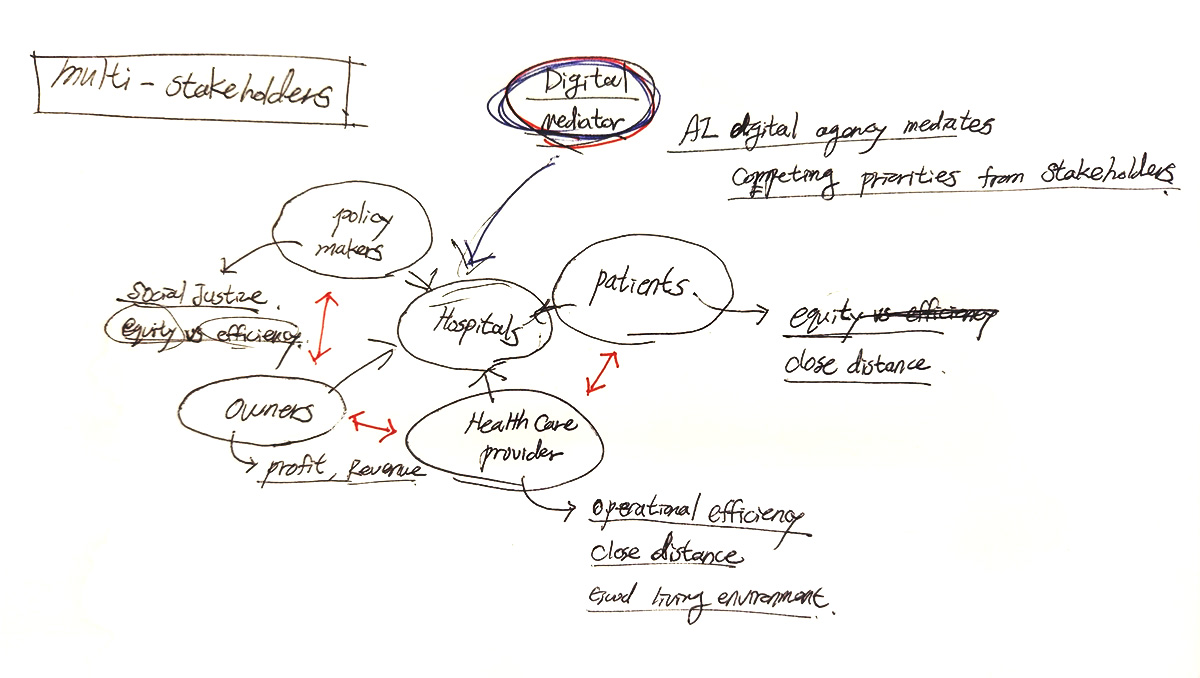 multi - stakeholders
Digital
mediator
AI digital agency mediates
competing priorities from stakeholders.
policy
makers
patients.
Social Justice.
equity vs efficiency.
Hospitals
equity vs efficiency
close distance.
owners
Health Care
provider
profit, Revenue
operational efficiency
close distance
Good living environment.